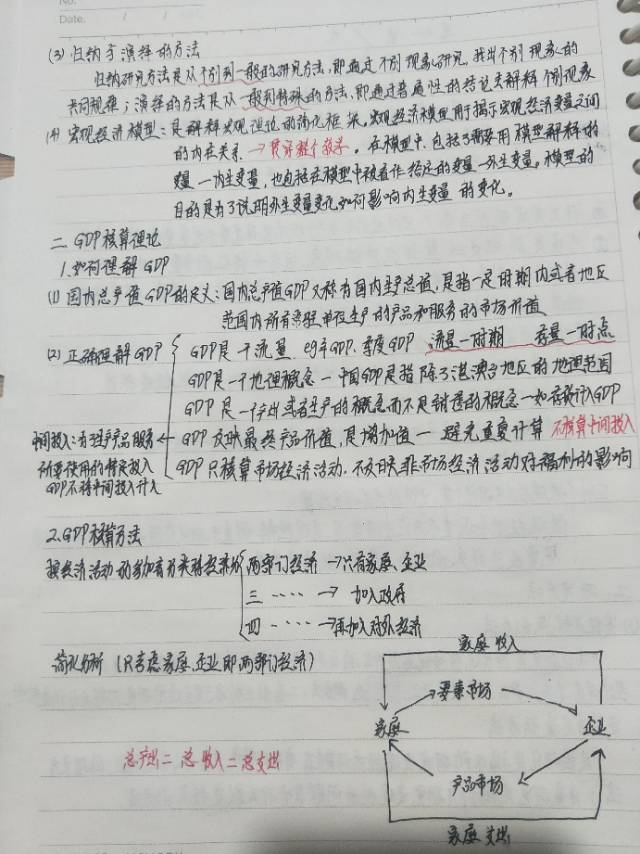 No.
Date. / /
(3) 归纳与演绎的方法
归纳研究方法是从个别到一般的研究方法,即通过个别现象研究,找出个别现象的
共同规律;演绎的方法是从一般到特殊的方法,即通过普遍性的结论去解释个别现象
(4) 宏观经济模型:是解释宏观理论的简化框架。宏观经济模型用于揭示宏观经济变量之间
的内在关系 →贯穿整个教学。在模型中,包括了需要用模型解释的
变量一内生变量,也包括在模型中被看作给定的变量一外生变量。模型的
目的是为了说明外生变量变化如何影响内生变量的变化。
二. GDP核算理论
1.如何理解GDP
(1) 国内总产值GDP的定义:国内总产值GDP又称为国内生产总值,是指一定时期内或者地区
范围内所有常驻单位生产的产品和服务的市场价值
(2) 正确理解GDP
GDP是一个流量 eg年GDP、季度GDP 流量一时期 存量一时点
GDP是一个地理概念一中国GDP是指除了港澳台地区的地理范围
GDP是一个产出或者生产的概念而不是销售的概念一如存货计入GDP
GDP反映最终产品价值,是增加值一避免重复计算 不核算中间投入
GDP只核算市场经济活动.不反映非市场经济活动对福利的影响
中间投入:在生产产品服务
所要使用的货物投入
GDP不将中间投入计入
2.GDP核算方法
按经济活动的参加者分类将经济分
两部门经济 →只有家庭、企业
三 ···· → 加入政府
四 ···· →再加入对外经济
简化分析 (只考虑家庭、企业即两部门经济)
家庭收入
要素市场
家庭 企业
总产出=总收入=总支出
产品市场
家庭支出